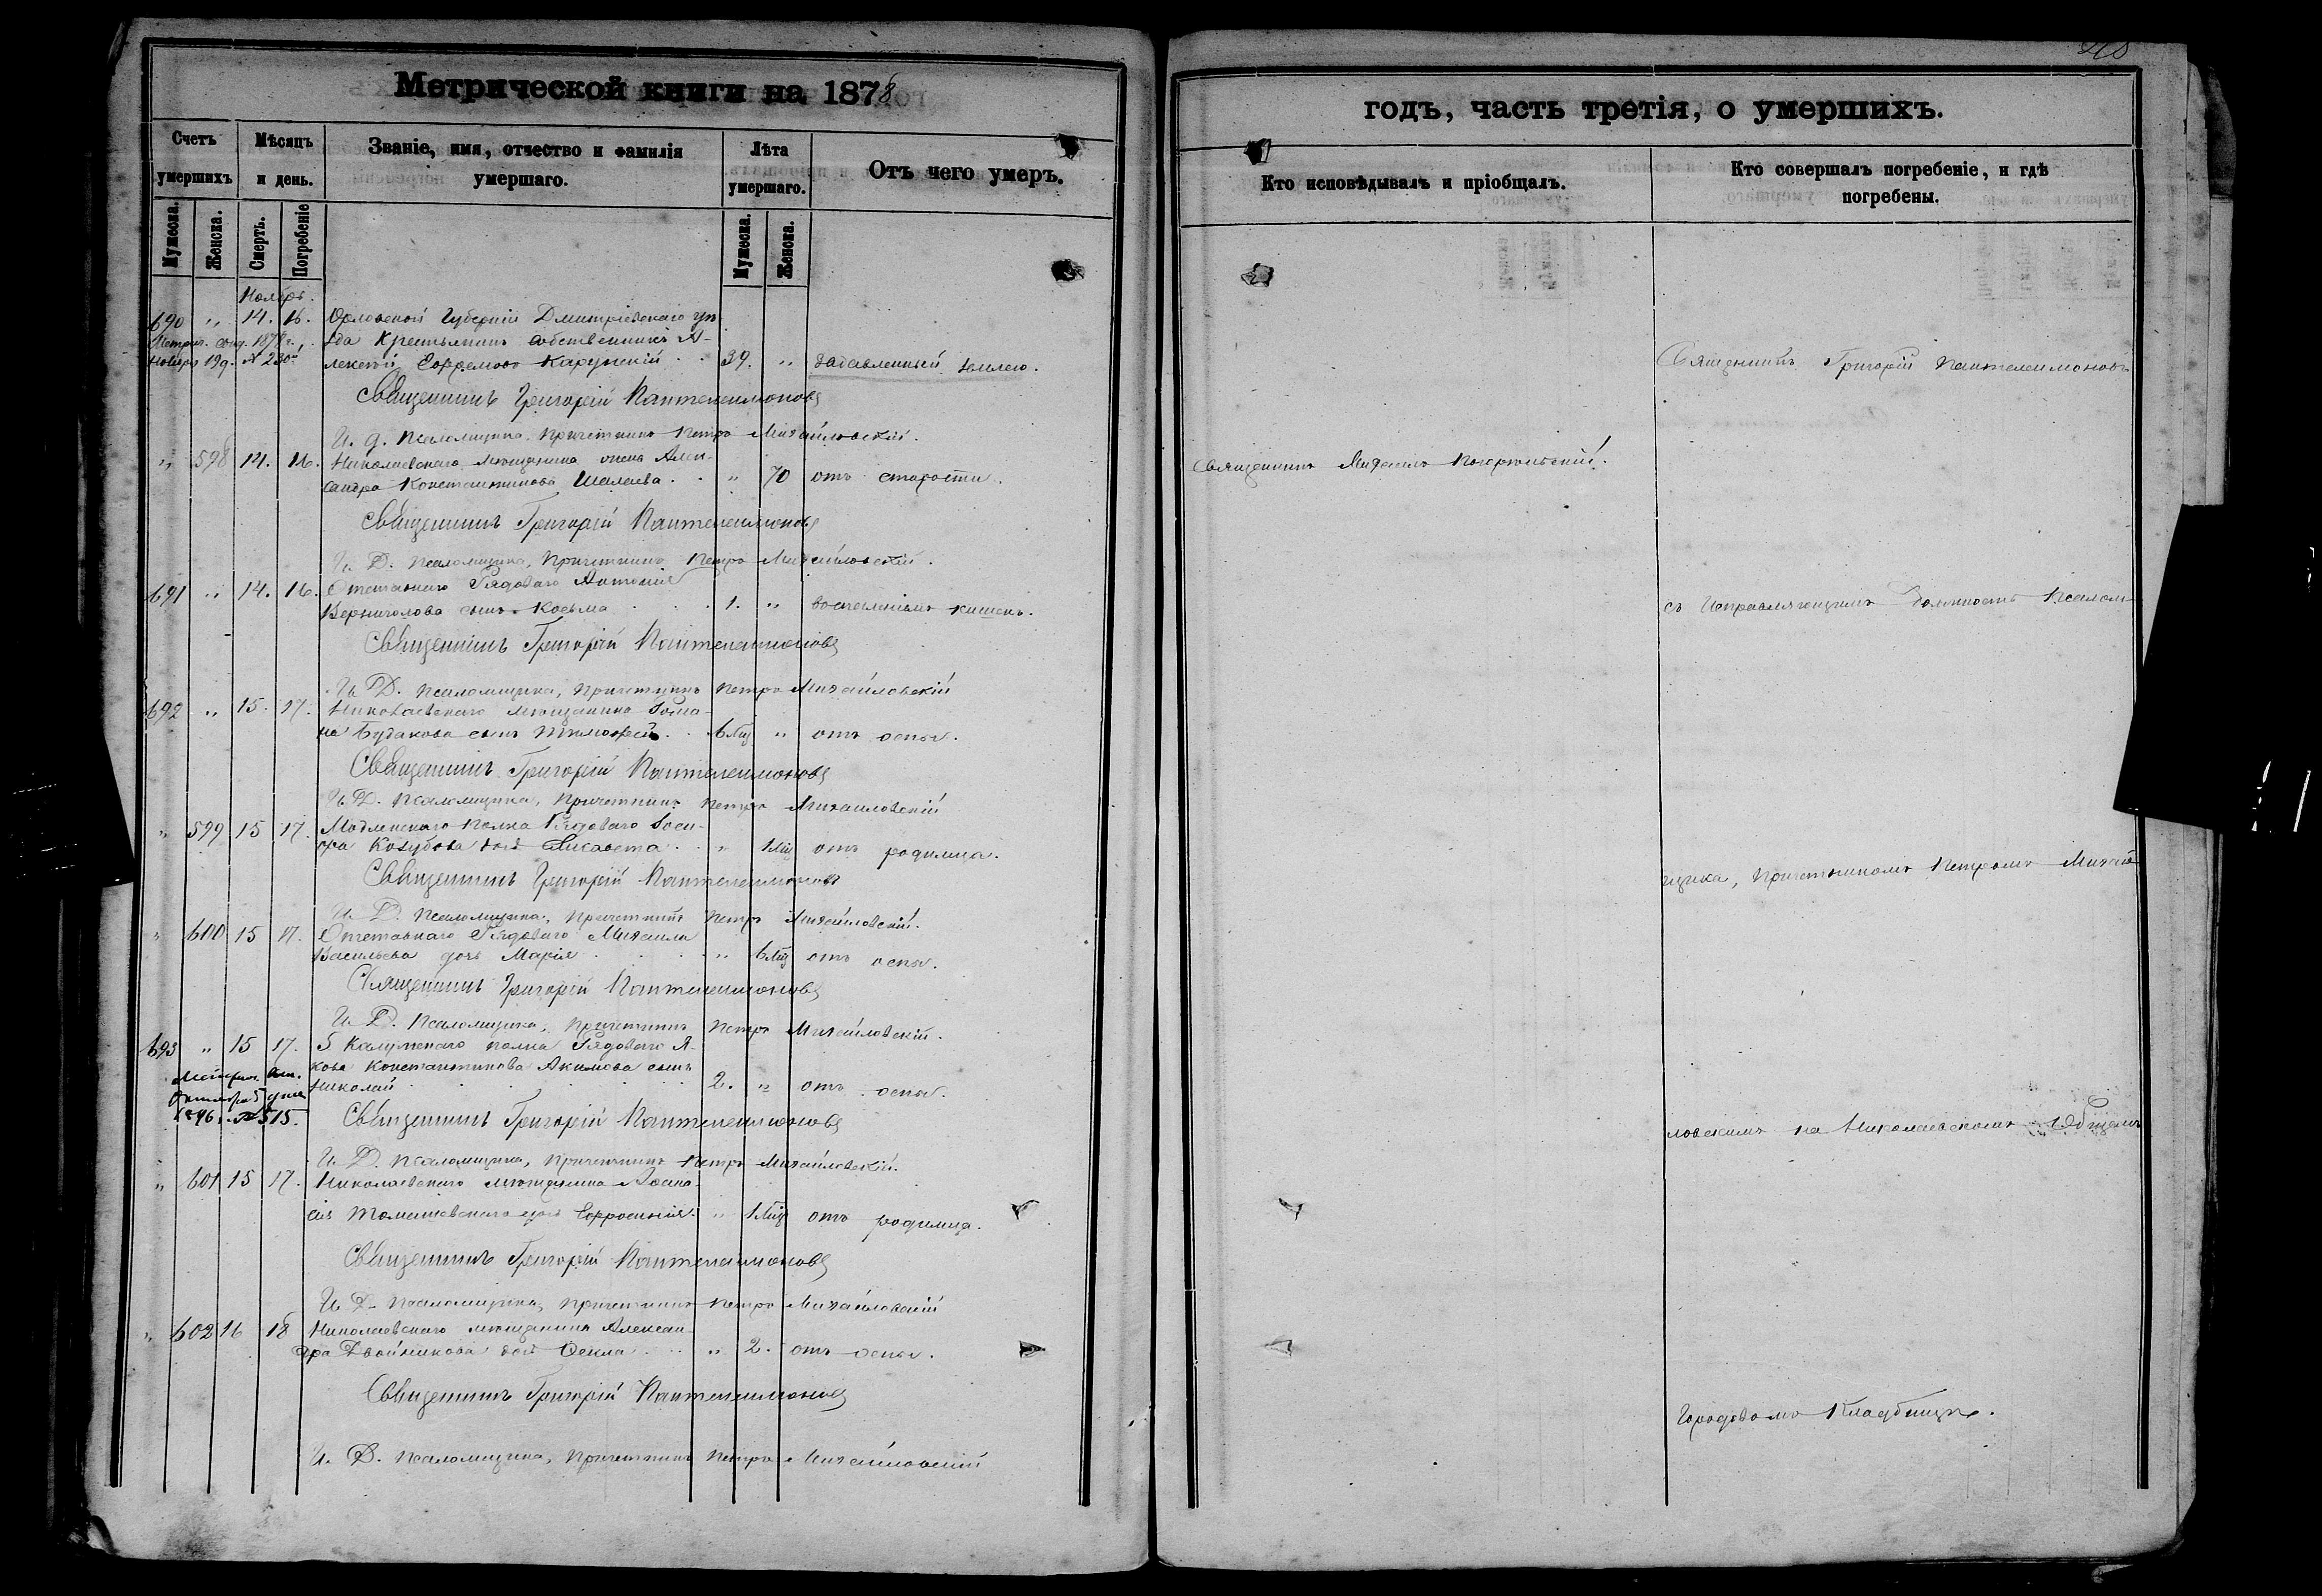 Метрической книги на 1878
Счетъ умершихъ
Мѣсяцъ и день.
Званіе, имя, отчество и фамилія умершаго.
Лѣта умершаго.
Отъ чего умеръ.
Мужеска.
Женска.
Смерть.
Погребеніе
Мужеска.
Женска.
Ноябрь.
690 " 14. 16. Орловской Губерніи Дмитріевскаго уѣ-
зда Крестьянинъ собственникъ А-
лексѣй Ефремовъ 39. " задавленный землею.
Ноября 19 д. № 230
Священникъ Григорій Пантелеимоновъ
И. д. Псаломщика, Причетникъ Петръ Михайловскій.
" 598 14. 16. Николаевскаго мѣщанина жена Алек-
сандра Константинова Шалаева . . " 70 отъ старости.
Священникъ Григорій Пантелеимоновъ
И. Д. Псаломщика, Причетникъ Петръ Михайловскій.
691 " 14. 16. Отставнаго Рядоваго Антонія
Верниголова сынъ Косьма . . . 1. " воспаленіемъ кишекъ.
Священникъ Григорій Пантелеимоновъ
И. Д. Псаломщика, Причетникъ Петръ Михайловскій
692 " 15. 17. Николаевскаго мѣщанина Рома-
на Будакова сынъ Тимофей . . 6 мц " отъ оспы.
Священникъ Григорій Пантелеимоновъ
И. Д. Псаломщика, Причетникъ Петръ Михайловскій
" 599 15 17. Модлинскаго полка Рядоваго Іоси-
фа Козубова дочь Елисавета . . " 1 мц отъ родимца.
Священникъ Григорій Пантелеимоновъ
И. Д. Псаломщика, Причетникъ Петръ Михайловскій.
" 600 15 17. Отставнаго Рядоваго Михаила
Васильева дочь Марія . . . . " 6 мц отъ оспы.
Священникъ Григорій Пантелеимоновъ
И. Д. Псаломщика, Причетникъ Петръ Михайловскій.
693 " 15 17. 5 Калужскаго полка Рядоваго Я-
кова Константинова Акимова сынъ
Николай . . . . . 2. " отъ оспы.
1896 г. № 515.
Священникъ Григорій Пантелеимоновъ
И. Д. Псаломщика, Причетникъ Петръ Михайловскій.
" 601 15 17. Николаевскаго мѣщанина
дочь Ефросинія. " 1 мц отъ родимца.
Священникъ Григорій Пантелеимоновъ
И. Д. Псаломщика, Причетникъ Петръ Михайловскій
" 602 16 18 Николаевскаго мѣщанина Алексан-
дра Двойникова дочь Ѳекла . . . " 2. отъ оспы.
Священникъ Григорій Пантелеимоновъ
И. Д. Псаломщика, Причетникъ Петръ Михайловскій
годъ, часть третія, о умершихъ.
Кто исповѣдывалъ и пріобщалъ.
Кто совершалъ погребеніе, и гдѣ погребены.
Священникъ Григорій Пантелеимоновъ
Священникъ Михаилъ
съ Исправляющимъ должность Псалом-
щика, Причетникомъ Петромъ Михай-
ловскимъ на Николаевскомъ Общемъ
Городовомъ Кладбищѣ.